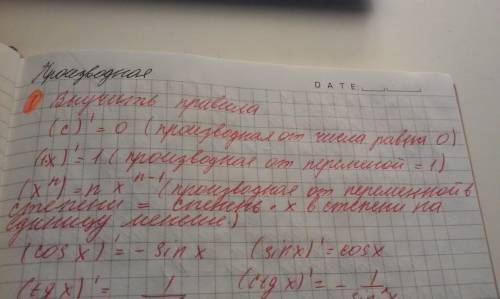 Производная
DATE:
1 Выучить правила
(c)' = 0 (производная от числа равна 0)
(x)' = 1 (производная от перемиой = 1)
(xⁿ) = n xⁿ⁻¹ (производная от переменной в
степени = степень · x в степени на
единицу меньше)
(cos x)' = - sin x (sin x)' = cos x
(tg x)' = 1 (ctg x)' = - 1